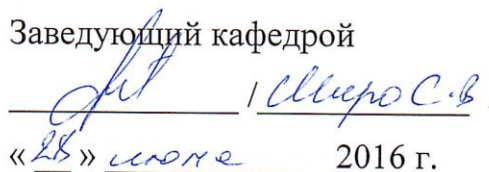 Заведующий кафедрой
/ Миро С.В.
«28» июня 2016 г.